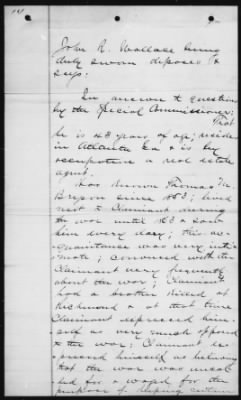 John R. Wallace being
duly sworn deposes &
says:
In answer to question
by the Special Commissioner:
That
he is 43 years of age; resides
in Atlanta Ga & is by
occupation a real estate
agent.
Has known Thomas M.
Bryson since 1863; lived
next to Claimant during
the war until 1863 & saw
him every day; this ac-
quaintance was very inti-
mate; conversed with the
Claimant very frequently
about the war; Claimant
had a brother killed at
Richmond & at that time
Claimant expressed him-
self as very much opposed
to the war; Claimant ex-
pressed himself as believing
that the war was
for & waged for the
purpose of